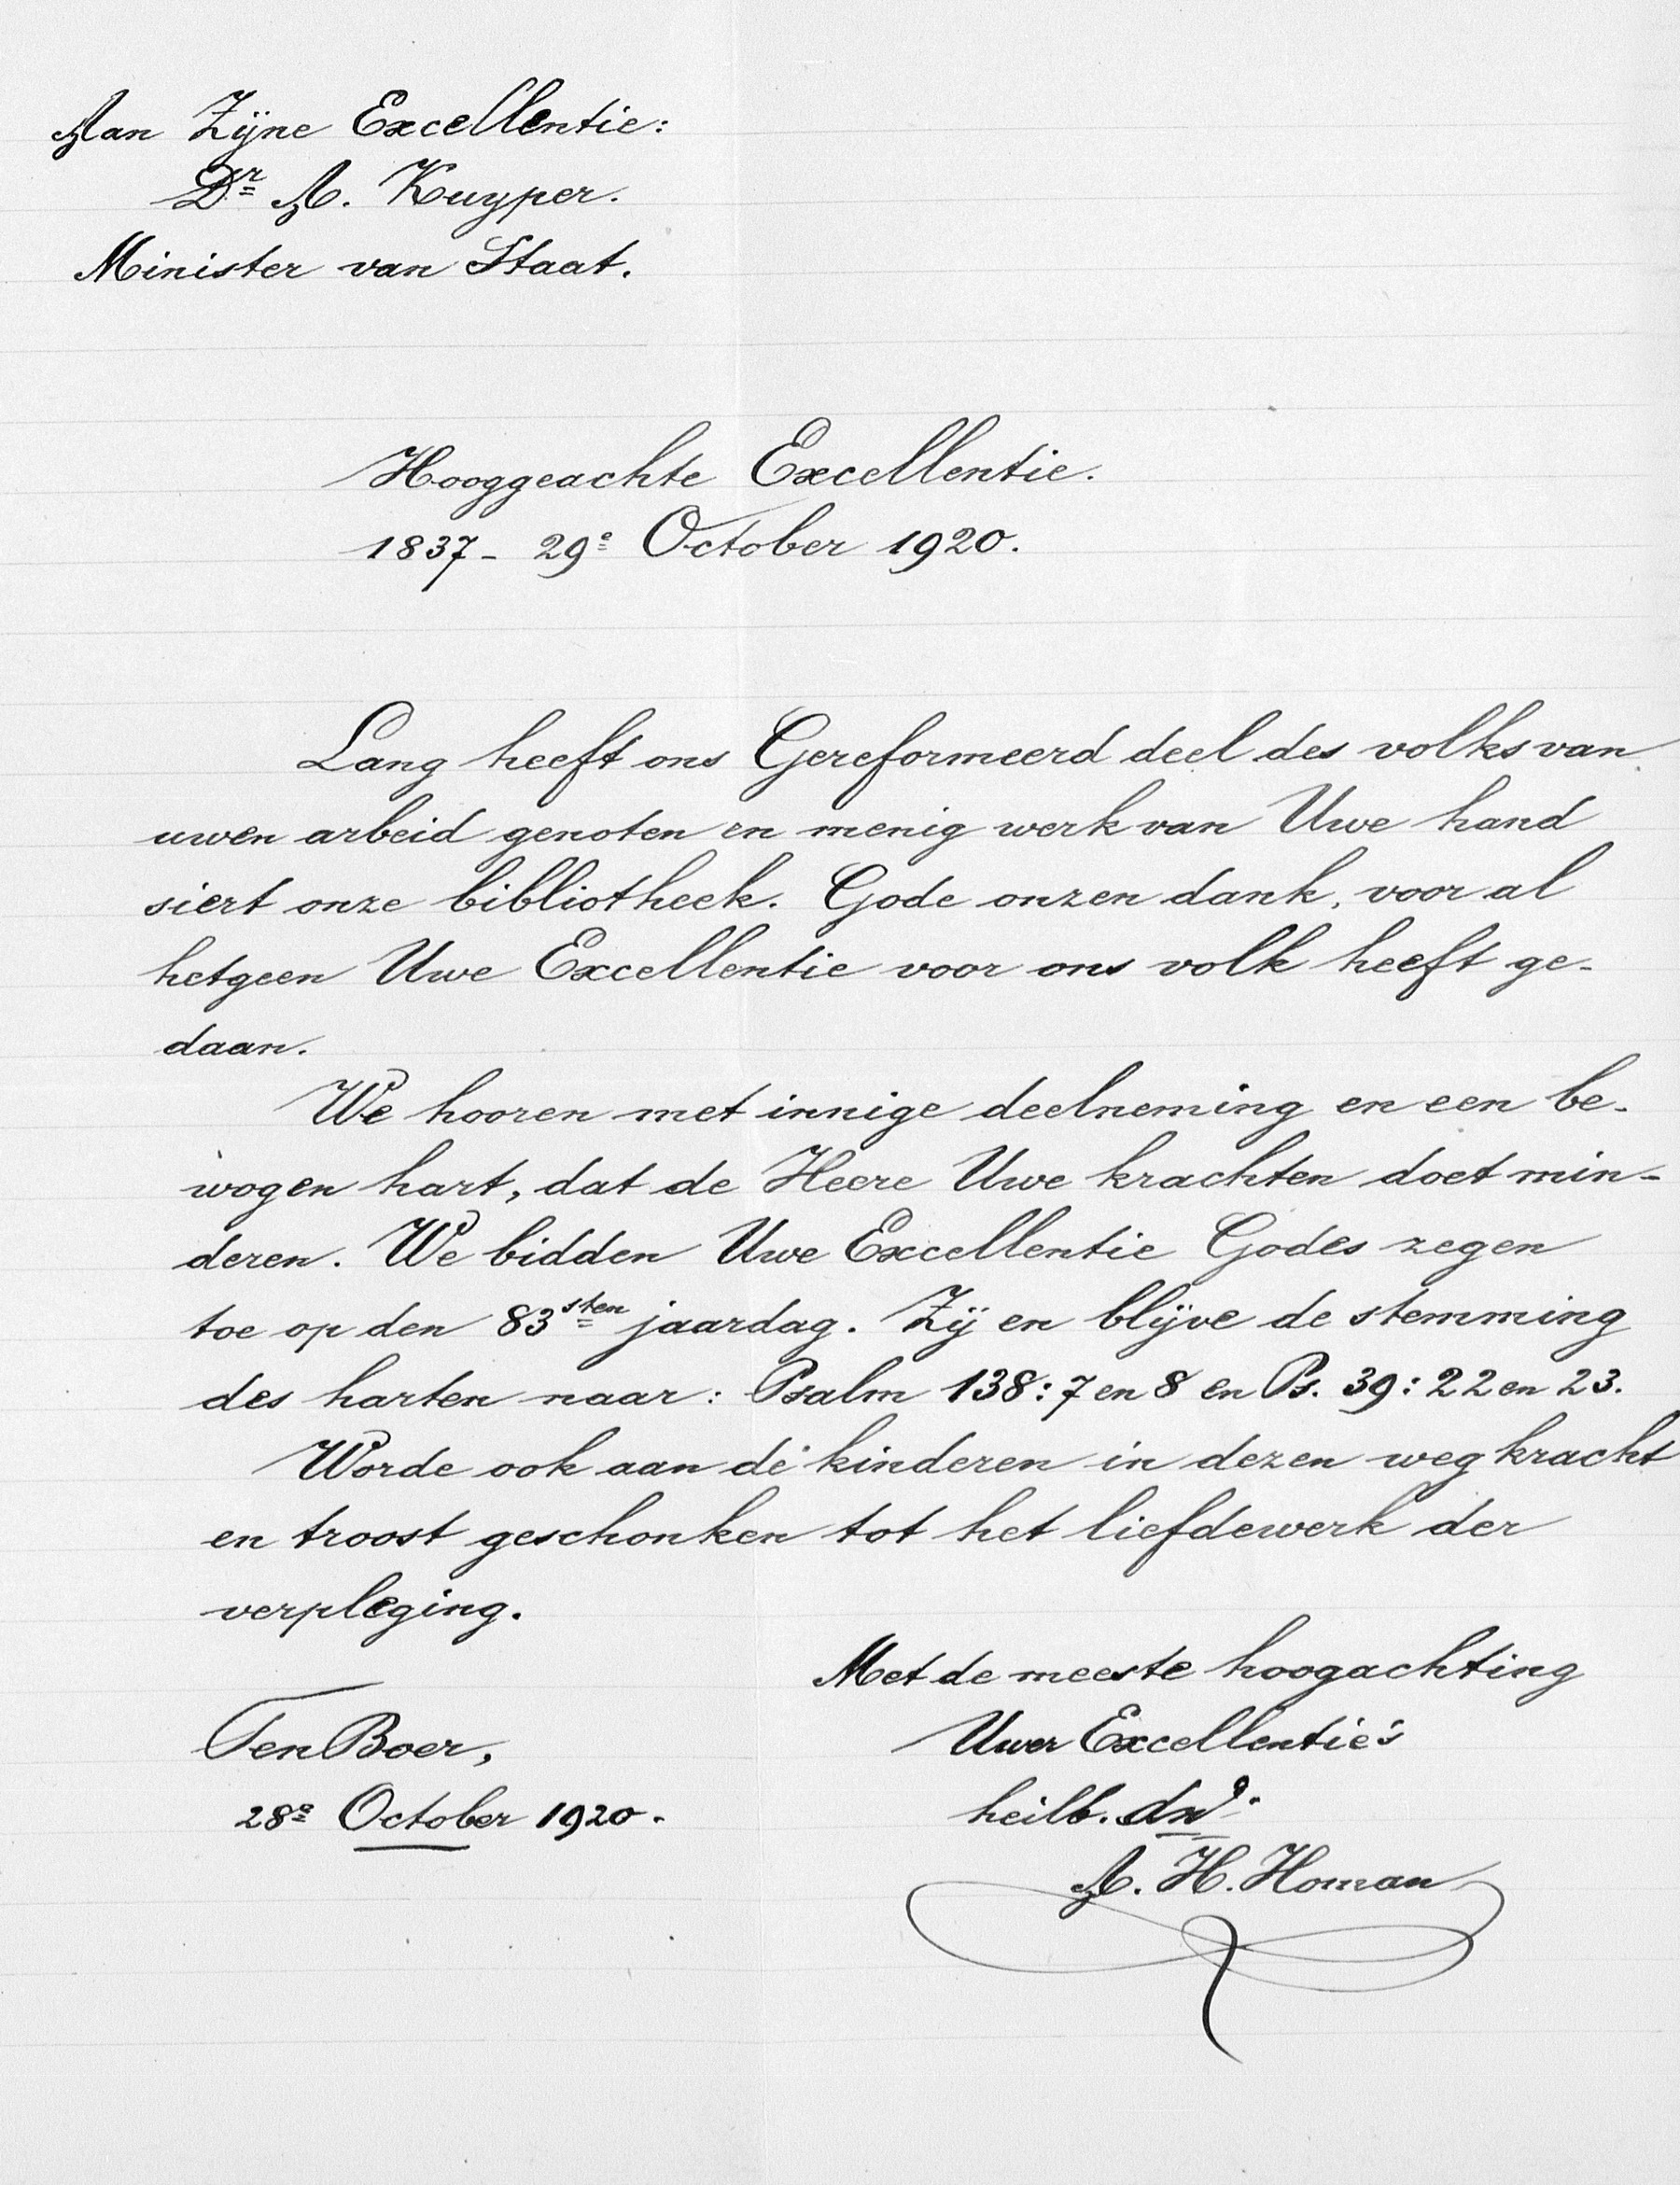 Aan Zijne Excellentie:
Dr A. Kuyper.
Minister van Staat.
Hooggeachte Excellentie.
1837 - 29e October 1920.
Lang heeft ons Gereformeerd deel des volks van
uwen arbeid genoten en menig werk van Uwe hand
siert onze bibliotheek. Gode onzen dank, voor al
hetgeen Uwe Excellentie voor ons volk heeft ge-
daan.
We hooren met innige deelneming en een be-
wogen hart, dat de Heere Uwe krachten doet min-
deren. We bidden Uwe Excellentie Godes zegen
toe op den 83sten jaardag. Zij en blijve de stemming
des harten naar: Psalm 138:7 en 8 en Ps. 39:22 en 23.
Worde ook aan de kinderen in dezen weg kracht
en troost geschonken tot het liefdewerk der
verpleging.
Met de meeste hoogachting
Uwer Excellentie's
heilb. dnr.
A. H. Homan
Ten Boer,
28e October 1920.